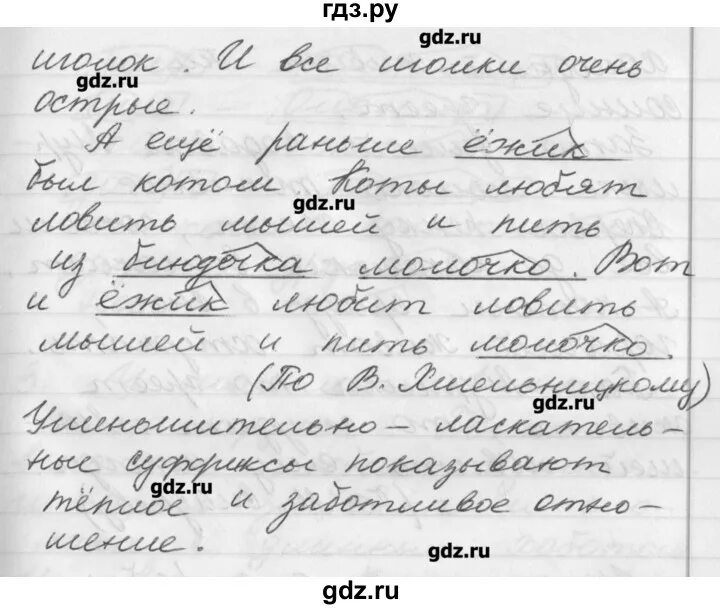 гдз.ру
gdz.ru
иголок. И все иголки очень
gdz.ru
острые.
А ещё раньше ёжик
был котом Коты любят
gdz.ru
ловить мышей и пить
из блюдечка молочко. Вот
и ёжик любит ловить
мышей и пить молочко.
(По В. Хмельницкому)
gdz.ru
Уменьшительно-ласкатель-
ные суффиксы показывают
gdz.ru
тёплое и заботливое отно-
шение.
gdz.ru
gdz.ru